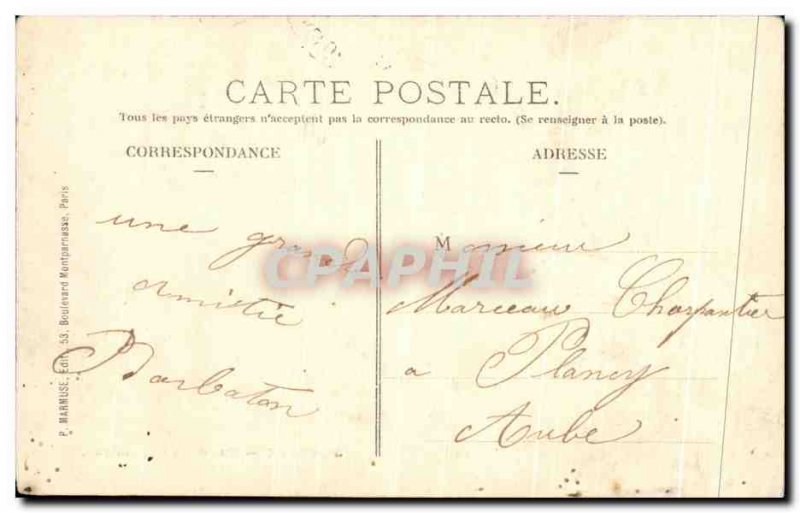 CARTE POSTALE.
Tous les pays étrangers n'acceptent pas la correspondance au recto. (Se renseigner à la poste).
CORRESPONDANCE
ADRESSE
P. MARMUSE, Edit. 53, Boulevard Montparnasse, Paris
une grande
amitié
Barbaton
Monsieur
Marceau Charpantier
a Plancy
Aube
CPAPHIL